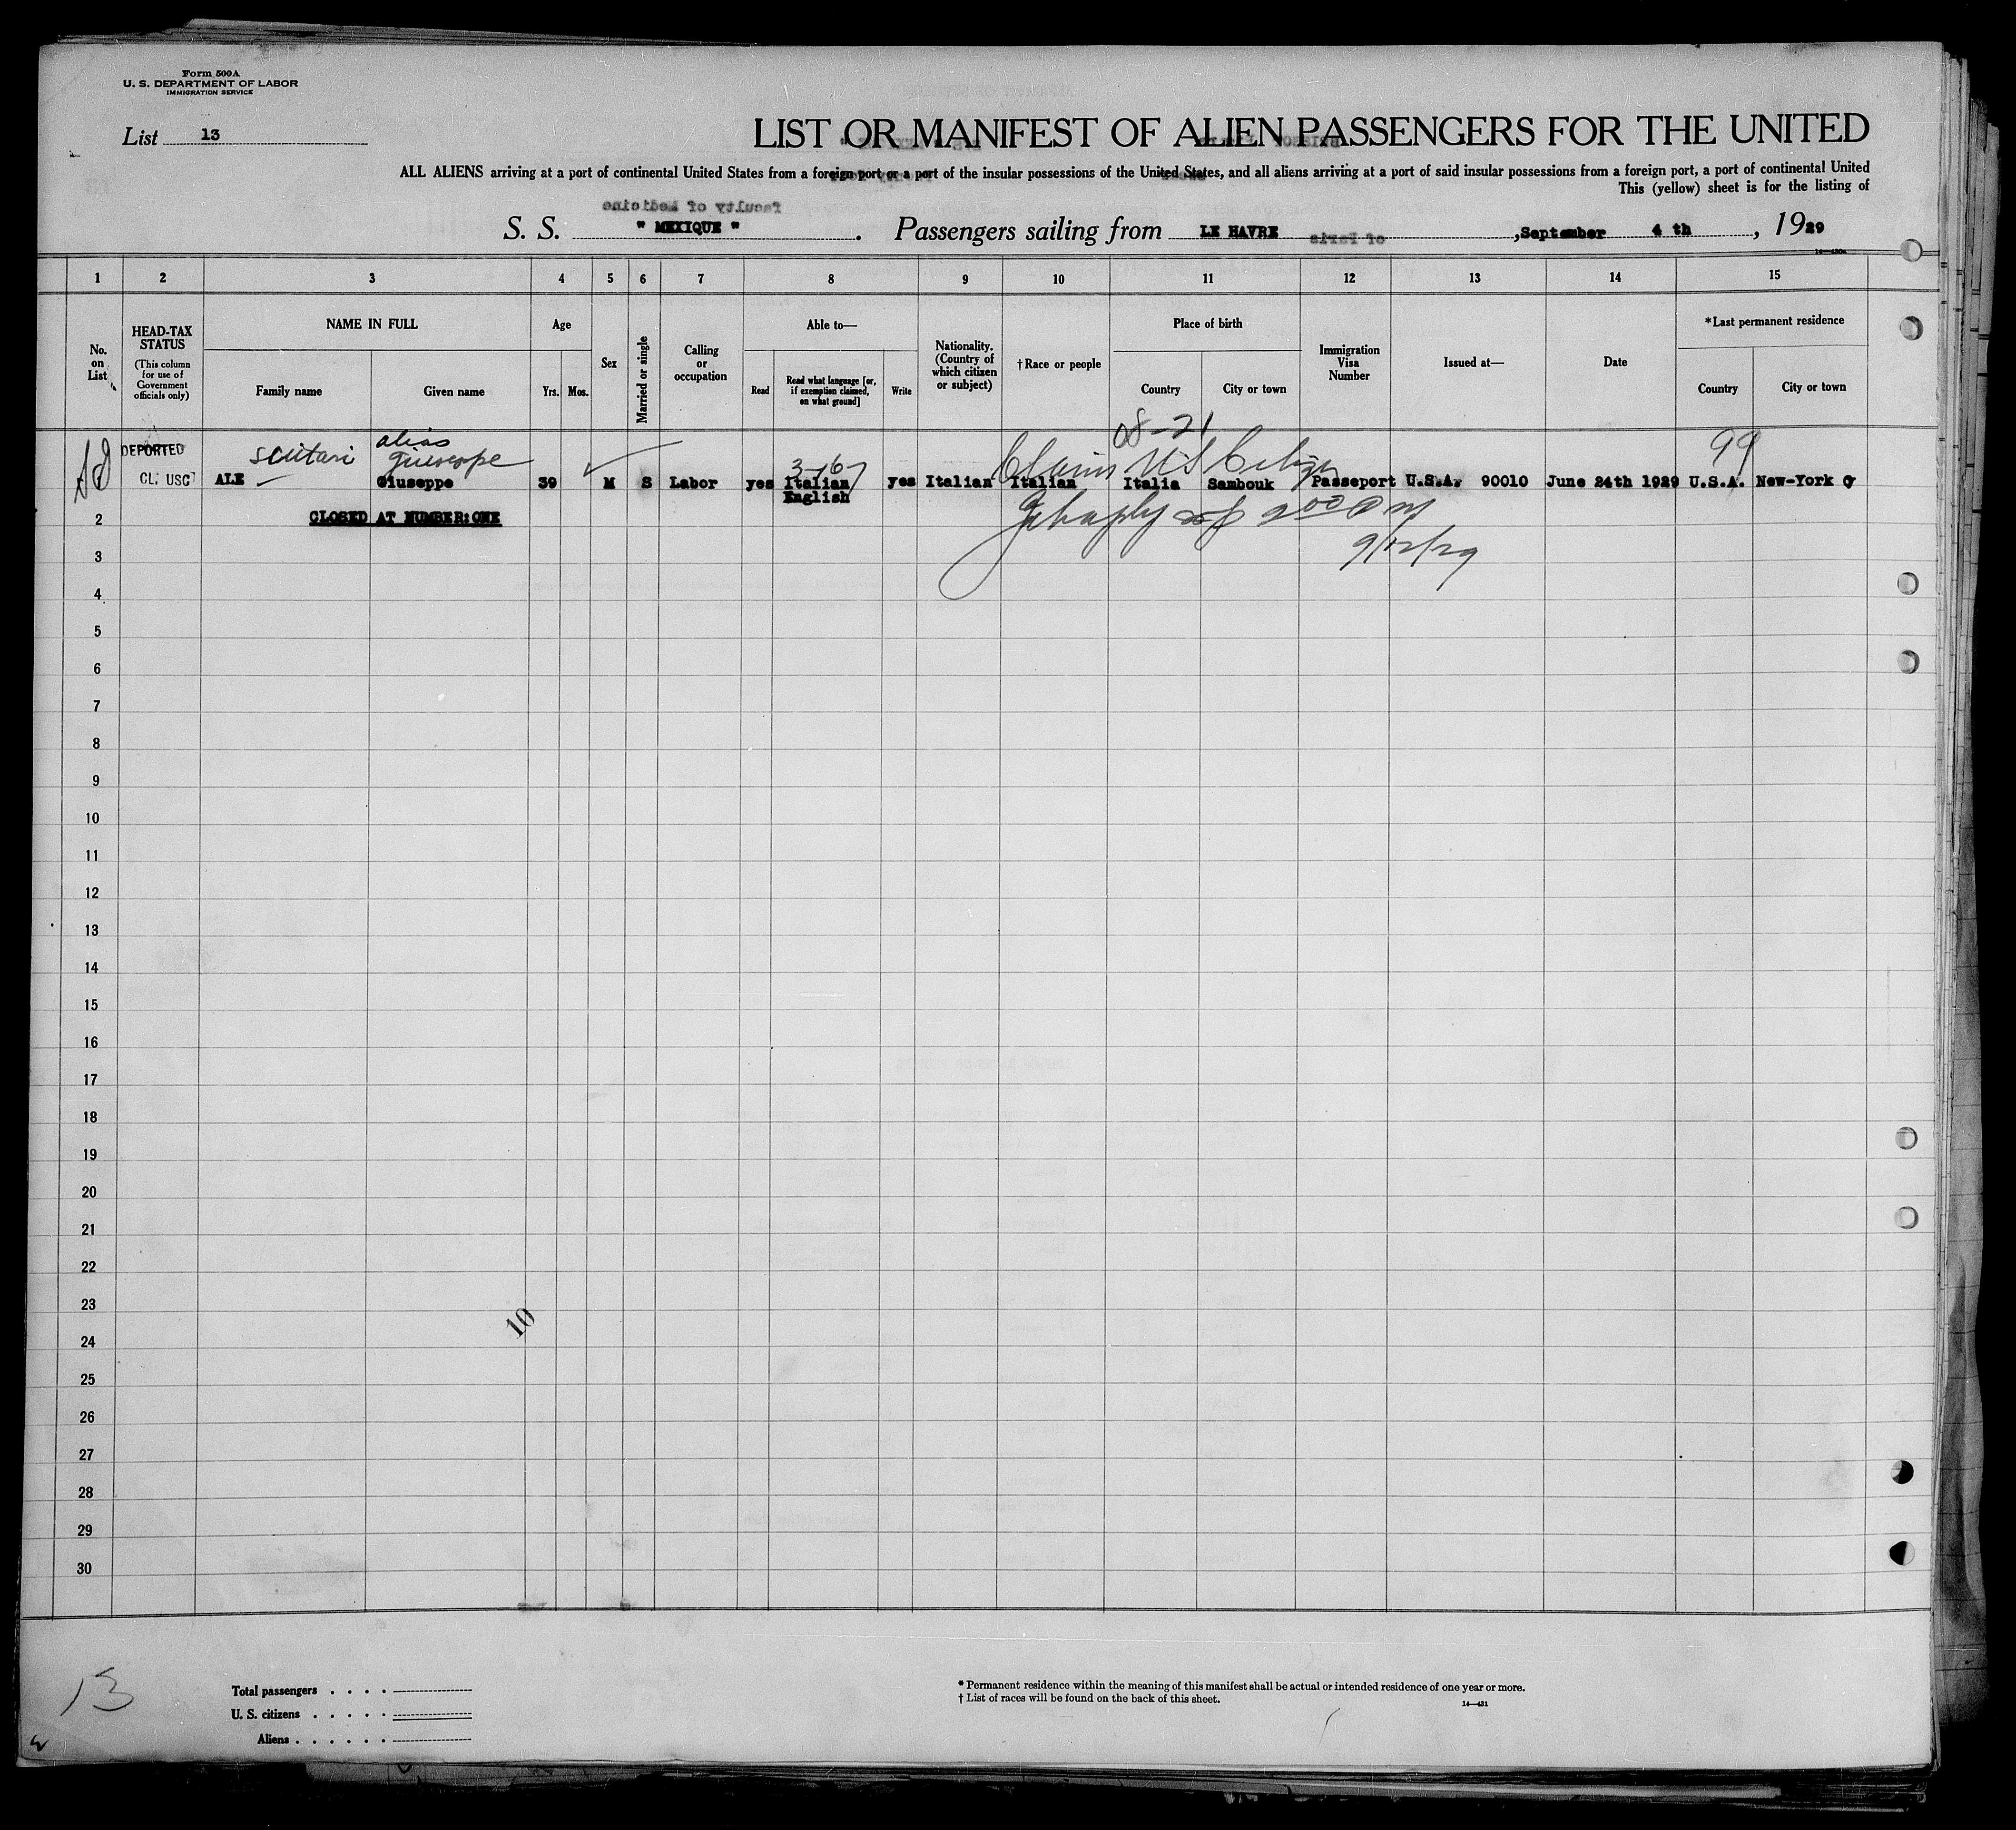 Form 500A
U. S. DEPARTMENT OF LABOR
IMMIGRATION SERVICE
List 13
LIST OR MANIFEST OF ALIEN PASSENGERS FOR THE UNITED
ALL ALIENS arriving at a port of continental United States from a foreign port or a port of the insular possessions of the United States, and all aliens arriving at a port of said insular possessions from a foreign port, a port of continental United
This (yellow) sheet is for the listing of
faculty of Medicine
S. S. " MEXIQUE ". Passengers sailing from LE HAVRE ,September 4 th , 1929
of Paris
14—430a
1 2 3 4 5 6 7 8 9 10 11 12 13 14 15
No. on List
HEAD-TAX STATUS
(This column for use of Government officials only)
NAME IN FULL
Family name Given name
Age
Yrs. Mos.
Sex
Married or single
Calling or occupation
Able to—
Read
Read what language [or, if exemption claimed, on what ground]
Write
Nationality. (Country of which citizen or subject)
†Race or people
Place of birth
Country City or town
Immigration Visa Number
Issued at—
Date
*Last permanent residence
Country City or town
08-21
DEPORTED Scutari alias Giuseppe 99
CL. USC 3-16 Claims US Citizen
ALE Giuseppe 39 M S Labor yes Italian yes Italian Italian Italia Sambouk Passeport U.S.A. 90010 June 24th 1929 U.S.A. New-York
English
2 CLOSED AT NUMBER:ONE
3 9/12/29
4
5
6
7
8
9
10
11
12
13
14
15
16
17
18
19
20
21
22
23
10
24
25
26
27
28
29
30
13
Total passengers
U. S. citizens
Aliens
* Permanent residence within the meaning of this manifest shall be actual or intended residence of one year or more.
† List of races will be found on the back of this sheet.
14—431